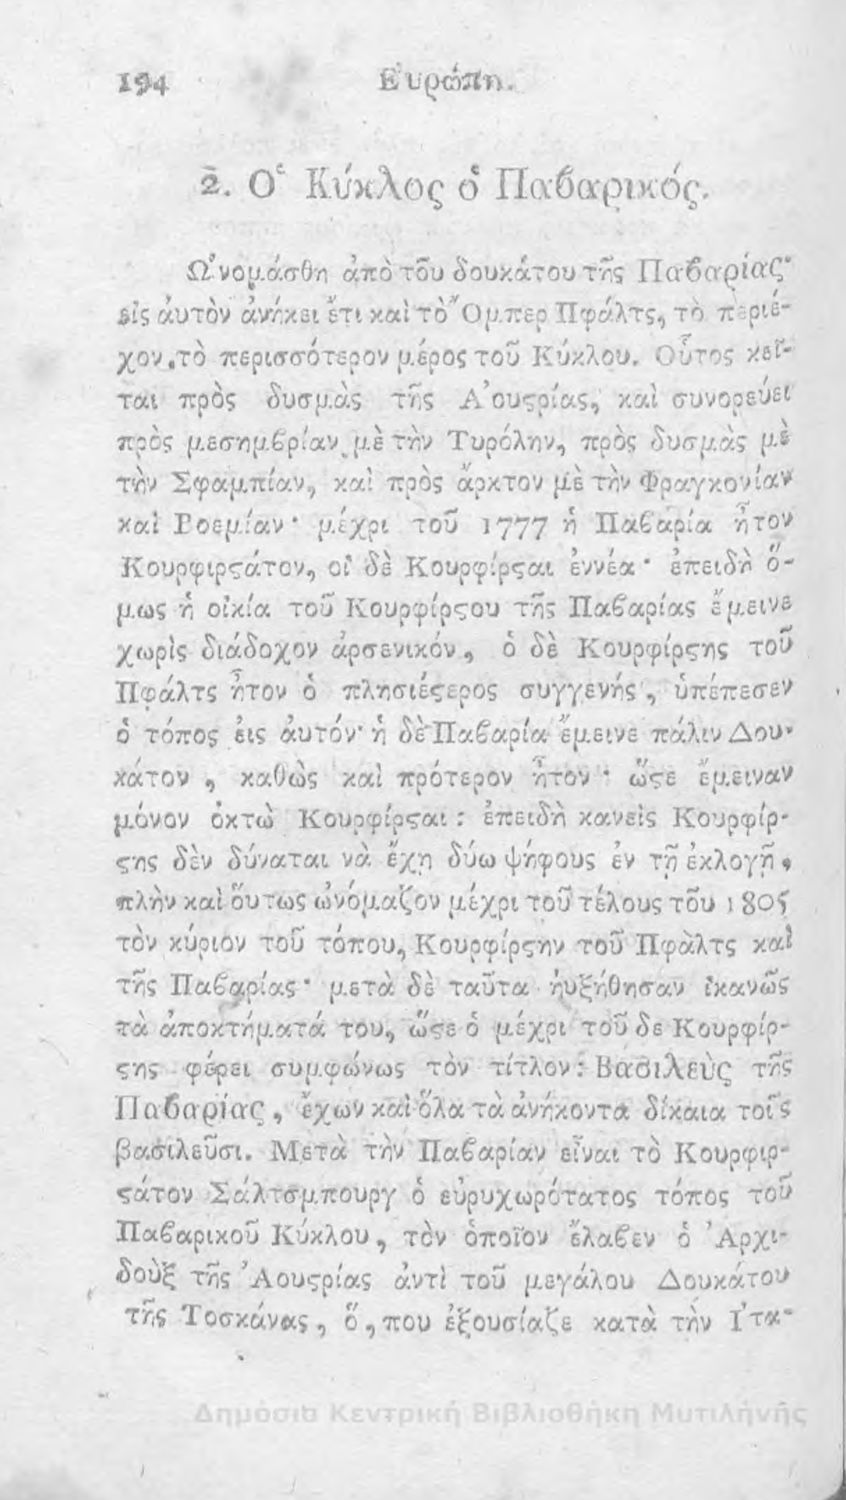 194 Εὐρώπη.
2. Ὁ Κύκλος ὁ Παϐαρικός.
Ὠνομάσθη ἀπὸ τοῦ δουκάτου τῆς Παϐαρίας·
εἰς ἀυτὸν ἀνήκει ἔτι καὶ τὸ Ὄμπερ Πφάλτς, τὸ περιέ-
χον τὸ περισσότερον μέρος τοῦ Κύκλου. Οὗτος κεῖ-
ται πρὸς δυσμὰς τῆς Ἀουςρίας, καὶ συνορεύει
πρὸς μεσημϐρίαν μὲ τὴν Τυρόλην, πρὸς δυσμὰς μὲ
τὴν Σφαμπίαν, καὶ πρὸς ἄρκτον μὲ τὴν Φραγκονίαν
καὶ Βοεμίαν· μέχρι τοῦ 1777 ἡ Παϐαρία ἦτον
Κουρφιρςάτον, οἱ δὲ Κουρφίρςαι ἐννέα· ἐπειδὴ ὅ-
μως ἡ οἰκία τοῦ Κουρφίρςου τῆς Παϐαρίας ἔμεινε
χωρὶς διάδοχον ἀρσενικόν, ὁ δὲ Κουρφίρςης τοῦ
Πφάλτς ἦτον ὁ πλησιέςερος συγγενής, ὑπέπεσεν
ὁ τόπος εἰς ἀυτόν· ἡ δὲ Παϐαρία ἔμεινε πάλιν Δου-
κάτον, καθὼς καὶ πρότερον ἦτον· ὥςε ἔμειναν
μόνον ὀκτὼ Κουρφίρςαι: ἐπειδὴ κανεὶς Κουρφίρ-
ςης δὲν δύναται νὰ ἔχη δύω ψήφους ἐν τῇ ἐκλογῇ,
πλὴν καὶ ὅυτως ὠνόμαζον μέχρι τοῦ τέλους τοῦ 1805
τὸν κύριον τοῦ τόπου, Κουρφίρςην τοῦ Πφὰλτς καὶ
τῆς Παϐαρίας· μετὰ δὲ ταῦτα ηὐξήθησαν ἱκανῶς
τὰ ἀποκτήματά του, ὥςε ὁ μέχρι τοῦ δε Κουρφίρ-
ςης φέρει συμφώνως τὸν τίτλον: Βασιλεὺς τῆς
Παϐαρίας, ἔχων καὶ ὅλα τὰ ἀνήκοντα δίκαια τοῖς
βασιλεῦσι. Μετὰ τὴν Παϐαρίαν εἶναι τὸ Κουρφιρ-
ςάτον Σάλτσμπουργ ὁ εὐρυχωρότατος τόπος τοῦ
Παϐαρικοῦ Κύκλου, τὸν ὁποῖον ἔλαϐεν ὁ Ἀρχι-
δοὺξ τῆς Ἀουςρίας ἀντὶ τοῦ μεγάλου Δουκάτου
τῆς Τοσκάνας, ὅ,που ἐξουσίαζε κατὰ τὴν Ἰτα-
Δημόσια Κεντρική Βιβλιοθήκη Μυτιλήνης